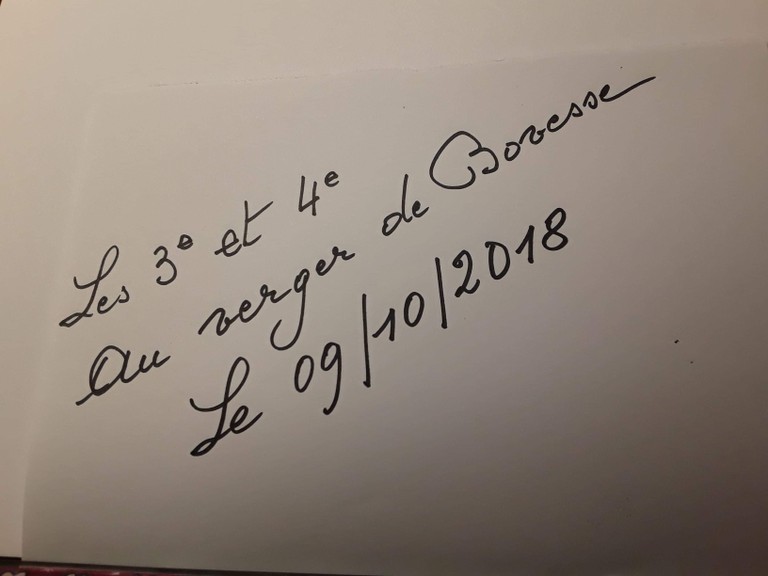 Les 3e et 4e
au verger de Bovesse
Le 09/10/2018